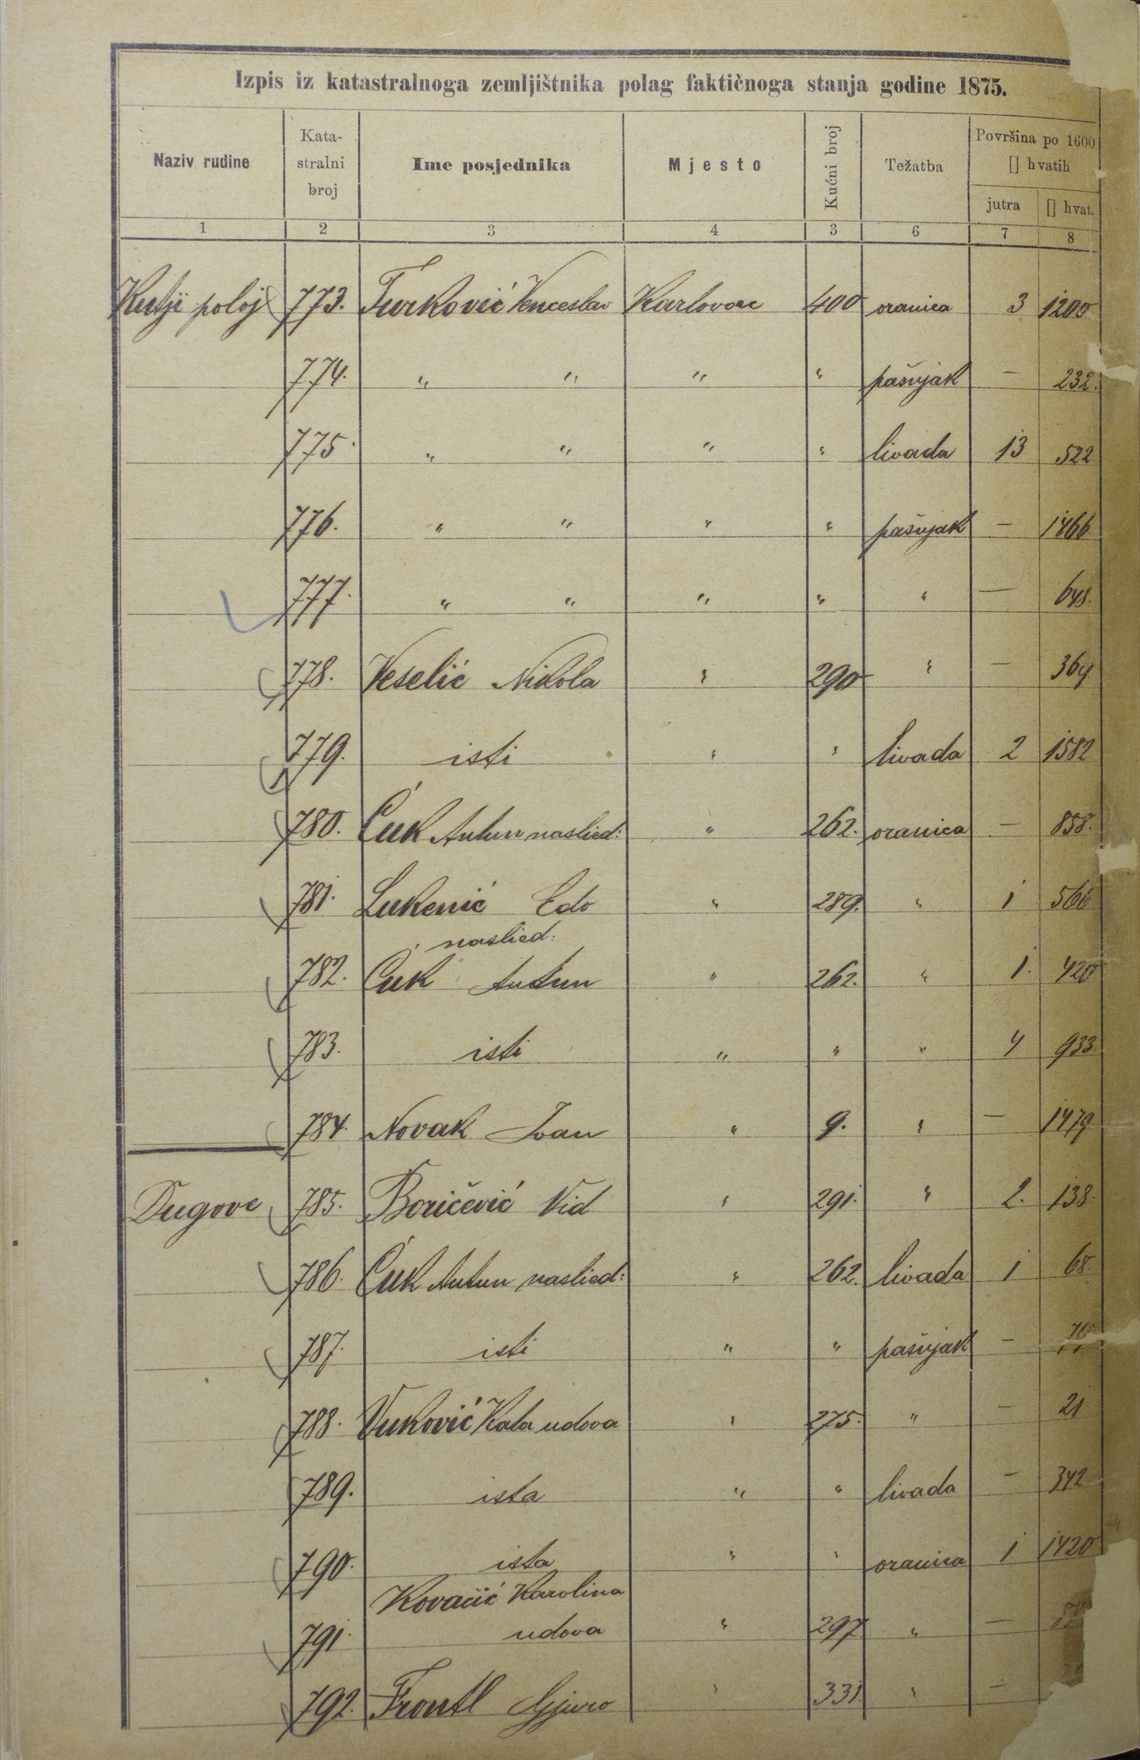 Izpis iz katastralnoga zemljištnika polag faktičnoga stanja godine 1875.
Naziv rudine Katastralni broj Ime posjednika Mjesto Kućni broj Težatba Površina po 1600 [] hvatih
jutra [] hvat.
1 2 3 4 3 6 7 8
poloj 773. Turković Venceslav Karlovac 400 oranica 3 1200
774. " " " " pašnjak — 232.
775. " " " " livada 13 522
776. " " " " pašnjak — 1466
777. " " " " " — 648.
778. Veselić Nikola " 290 " — 364
779. isti " " livada 2 1582
780. Ćuk Antun naslied: " 262. oranica — 858.
781. Lukenić Edo " 289. " 1 566
naslied:
782. Ćuk Antun " 262. " 1. 420
783. isti " " " 4 933
784. Novak Ivan " 9. " — 1479.
Dugove 785. Boričević Vid " 291. " 2. 138.
786. Ćuk Antun naslied: " 262. livada 1 68
787. isti " " pašnjak —
788. Vuković Kata udova " 275. " — 21
789. ista " " livada — 342
790. ista " " oranica 1 1420
Kovačić Karolina
791. udova " 297 " —
792. Frontl Gjuro " 331. " —